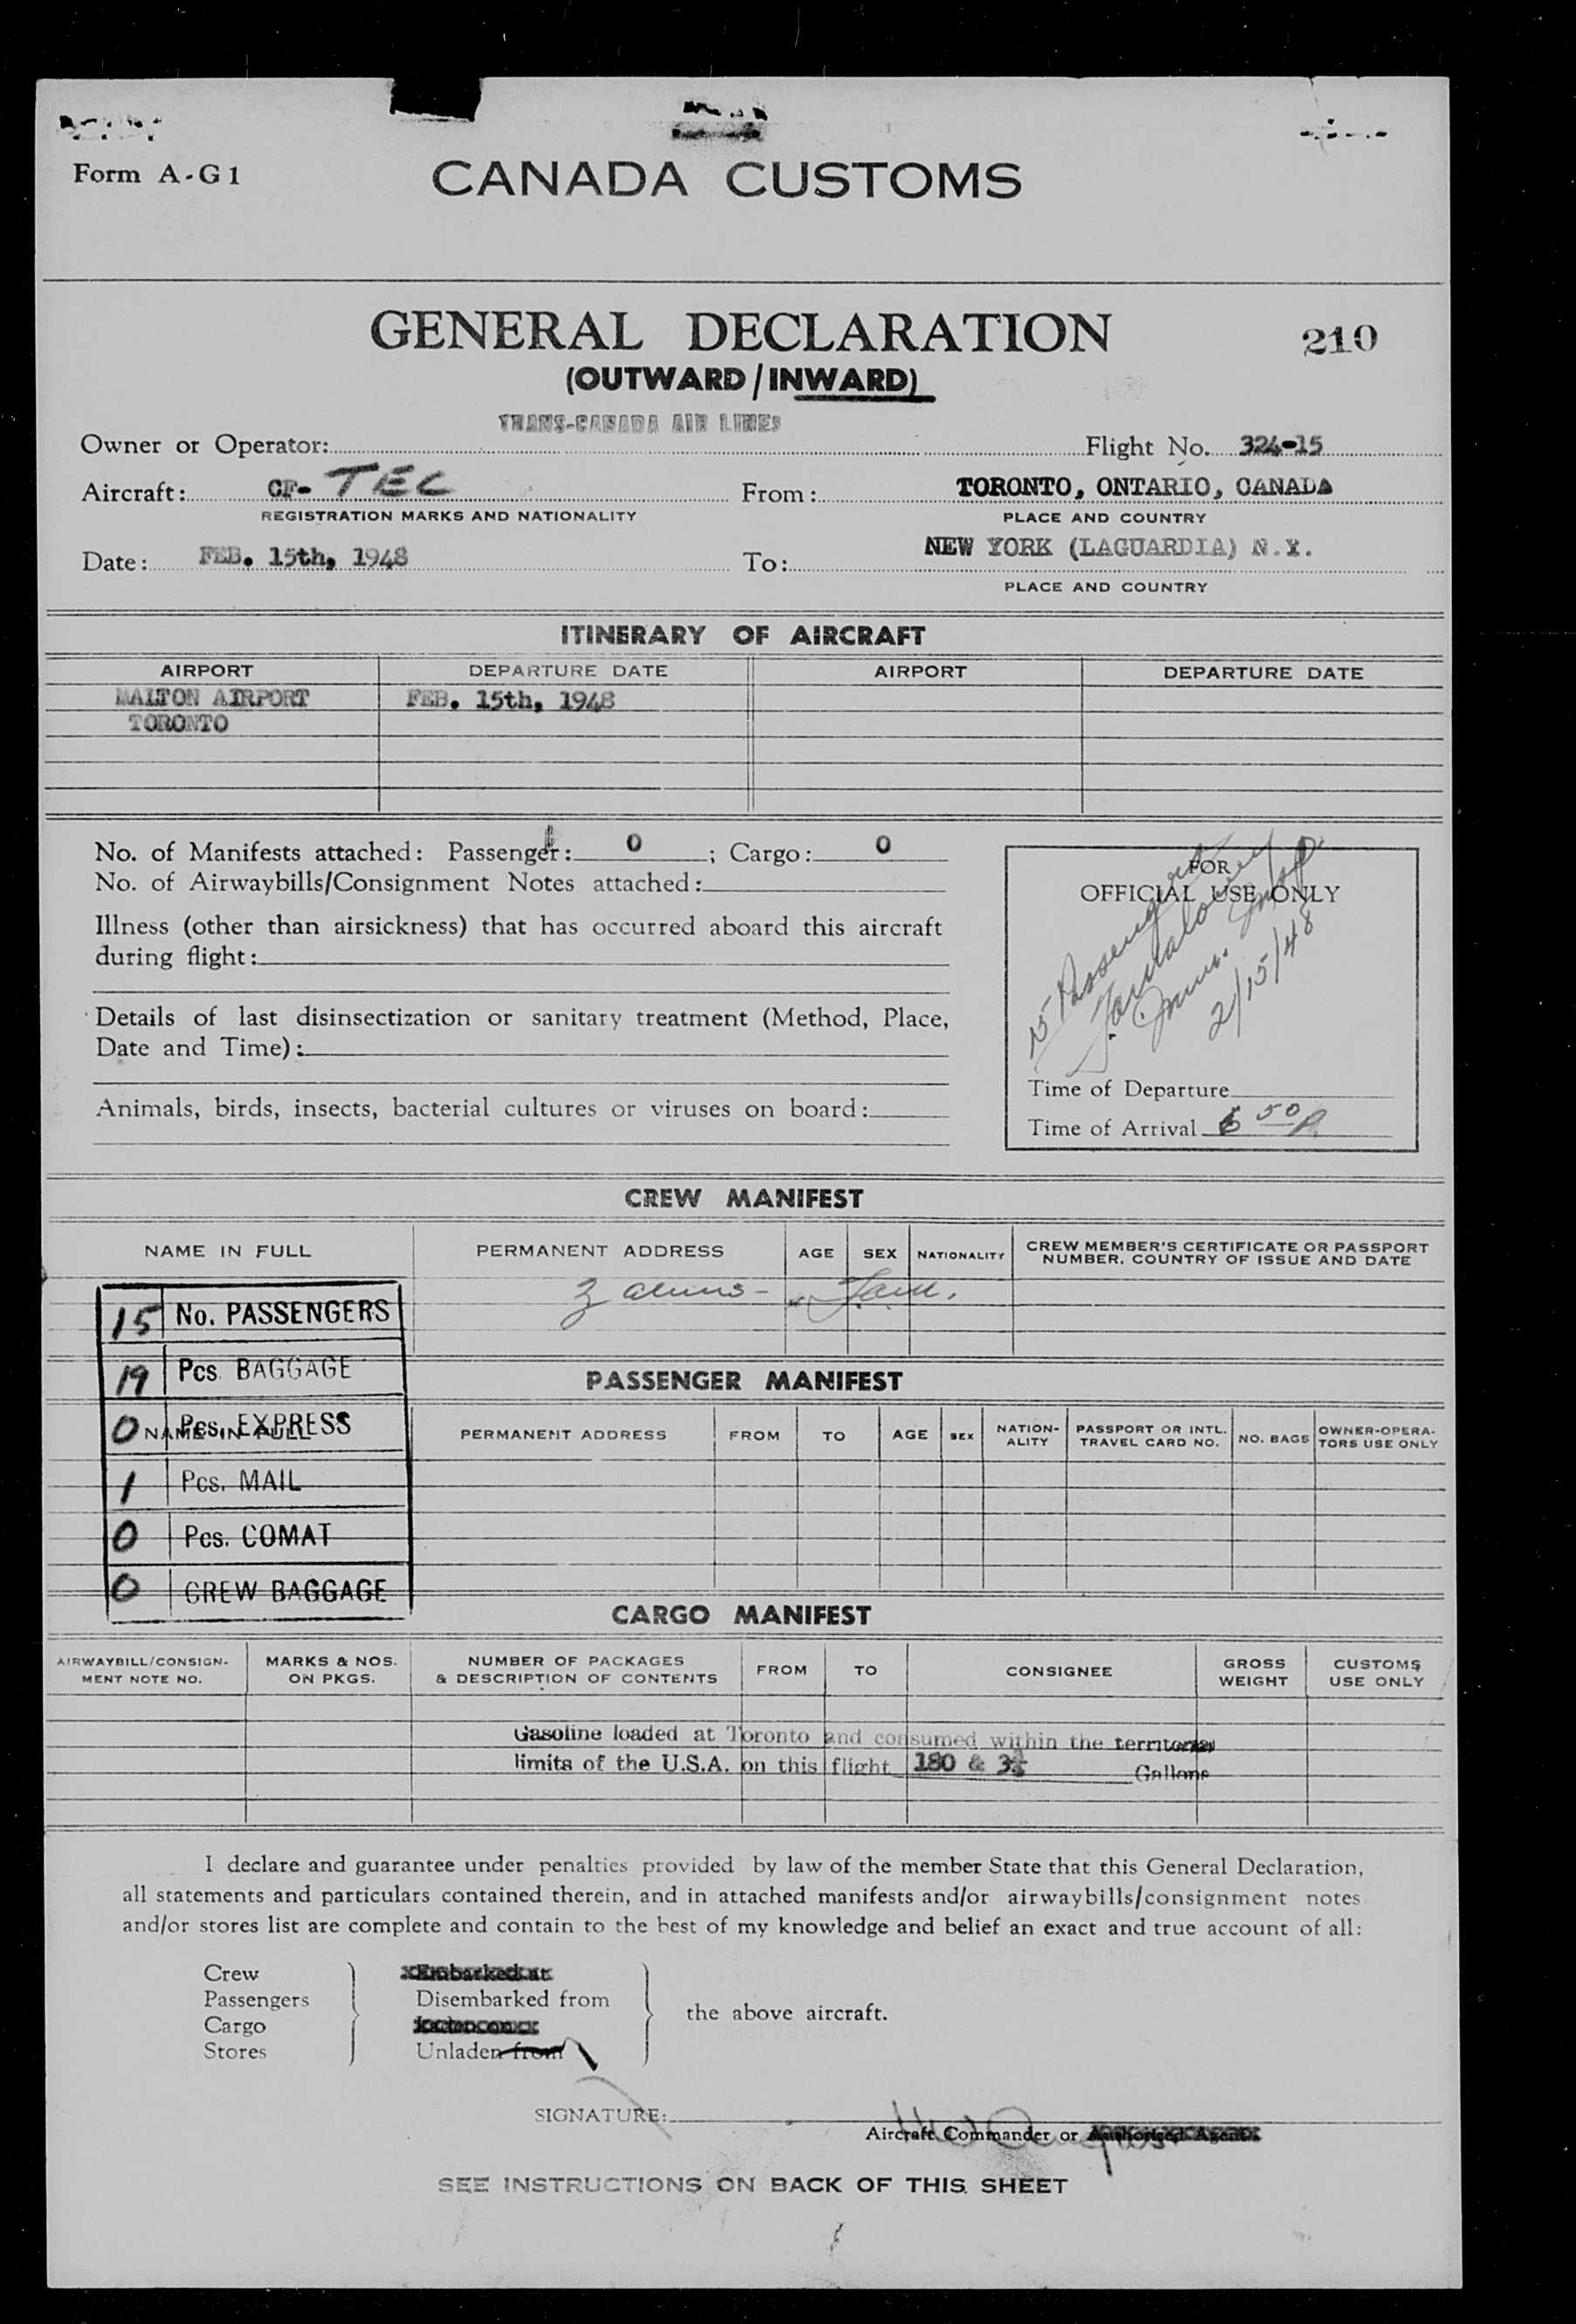 Form A-G1
CANADA CUSTOMS
GENERAL DECLARATION 210
(OUTWARD/INWARD)
TRANS-CANADA AIR LINES
Owner or Operator: Flight No. 324-15
Aircraft: CF- TEC From: TORONTO, ONTARIO, CANADA
REGISTRATION MARKS AND NATIONALITY PLACE AND COUNTRY
Date: FEB. 15th, 1948 To: NEW YORK (LAGUARDIA) N.Y.
PLACE AND COUNTRY
ITINERARY OF AIRCRAFT
AIRPORT DEPARTURE DATE AIRPORT DEPARTURE DATE
MALTON AIRPORT FEB. 15th, 1948
TORONTO
No. of Manifests attached: Passenger: 0 ; Cargo: 0
No. of Airwaybills/Consignment Notes attached:
Illness (other than airsickness) that has occurred aboard this aircraft
during flight:
Details of last disinsectization or sanitary treatment (Method, Place,
Date and Time):
Animals, birds, insects, bacterial cultures or viruses on board:
FOR
OFFICIAL USE ONLY
15 Passengers
Imm. Insp.
2/15/48
Time of Departure
Time of Arrival 6 50 P
CREW MANIFEST
NAME IN FULL PERMANENT ADDRESS AGE SEX NATIONALITY CREW MEMBER'S CERTIFICATE OR PASSPORT
NUMBER, COUNTRY OF ISSUE AND DATE
3 aliens -
15 No. PASSENGERS
19 Pcs. BAGGAGE
0 Pcs. EXPRESS
1 Pcs. MAIL
0 Pcs. COMAT
0 CREW BAGGAGE
PASSENGER MANIFEST
NAME IN FULL PERMANENT ADDRESS FROM TO AGE SEX NATION-
ALITY PASSPORT OR INTL.
TRAVEL CARD NO. NO. BAGS OWNER-OPERA-
TORS USE ONLY
CARGO MANIFEST
AIRWAYBILL/CONSIGN-
MENT NOTE NO. MARKS & NOS.
ON PKGS. NUMBER OF PACKAGES
& DESCRIPTION OF CONTENTS FROM TO CONSIGNEE GROSS
WEIGHT CUSTOMS
USE ONLY
Gasoline loaded at Toronto and consumed within the territorial
limits of the U.S.A. on this flight 180 & 3¾ Gallons
I declare and guarantee under penalties provided by law of the member State that this General Declaration,
all statements and particulars contained therein, and in attached manifests and/or airwaybills/consignment notes
and/or stores list are complete and contain to the best of my knowledge and belief an exact and true account of all:
Crew Embarked at
Passengers Disembarked from
Cargo the above aircraft.
Stores Unladen from
SIGNATURE:
Aircraft Commander or Authorized Agent.
SEE INSTRUCTIONS ON BACK OF THIS SHEET